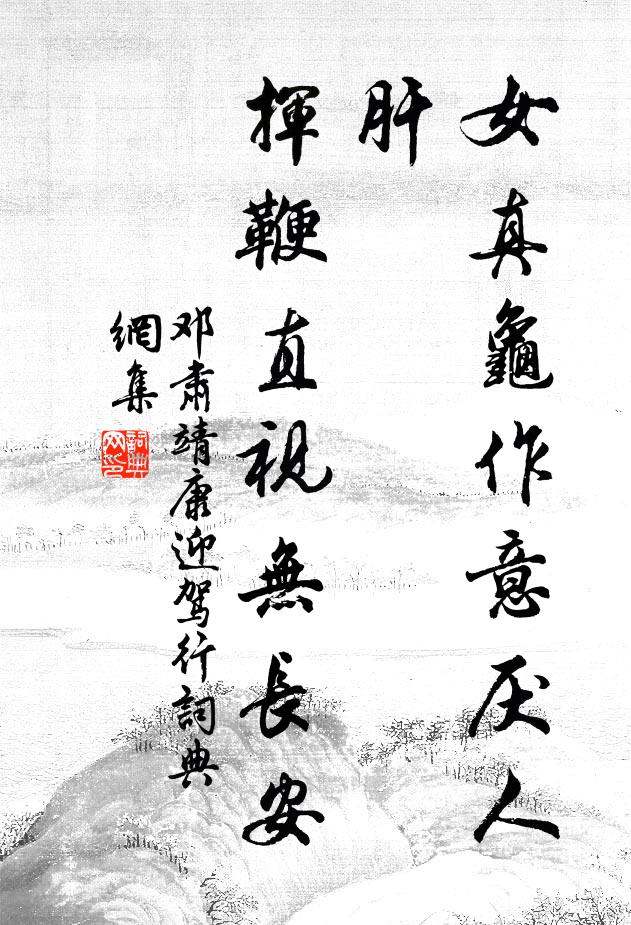 女真龜作意厌人
肝
揮鞭直視無長安
邓肅靖康迎駕行詞典
網集
詞典
网印